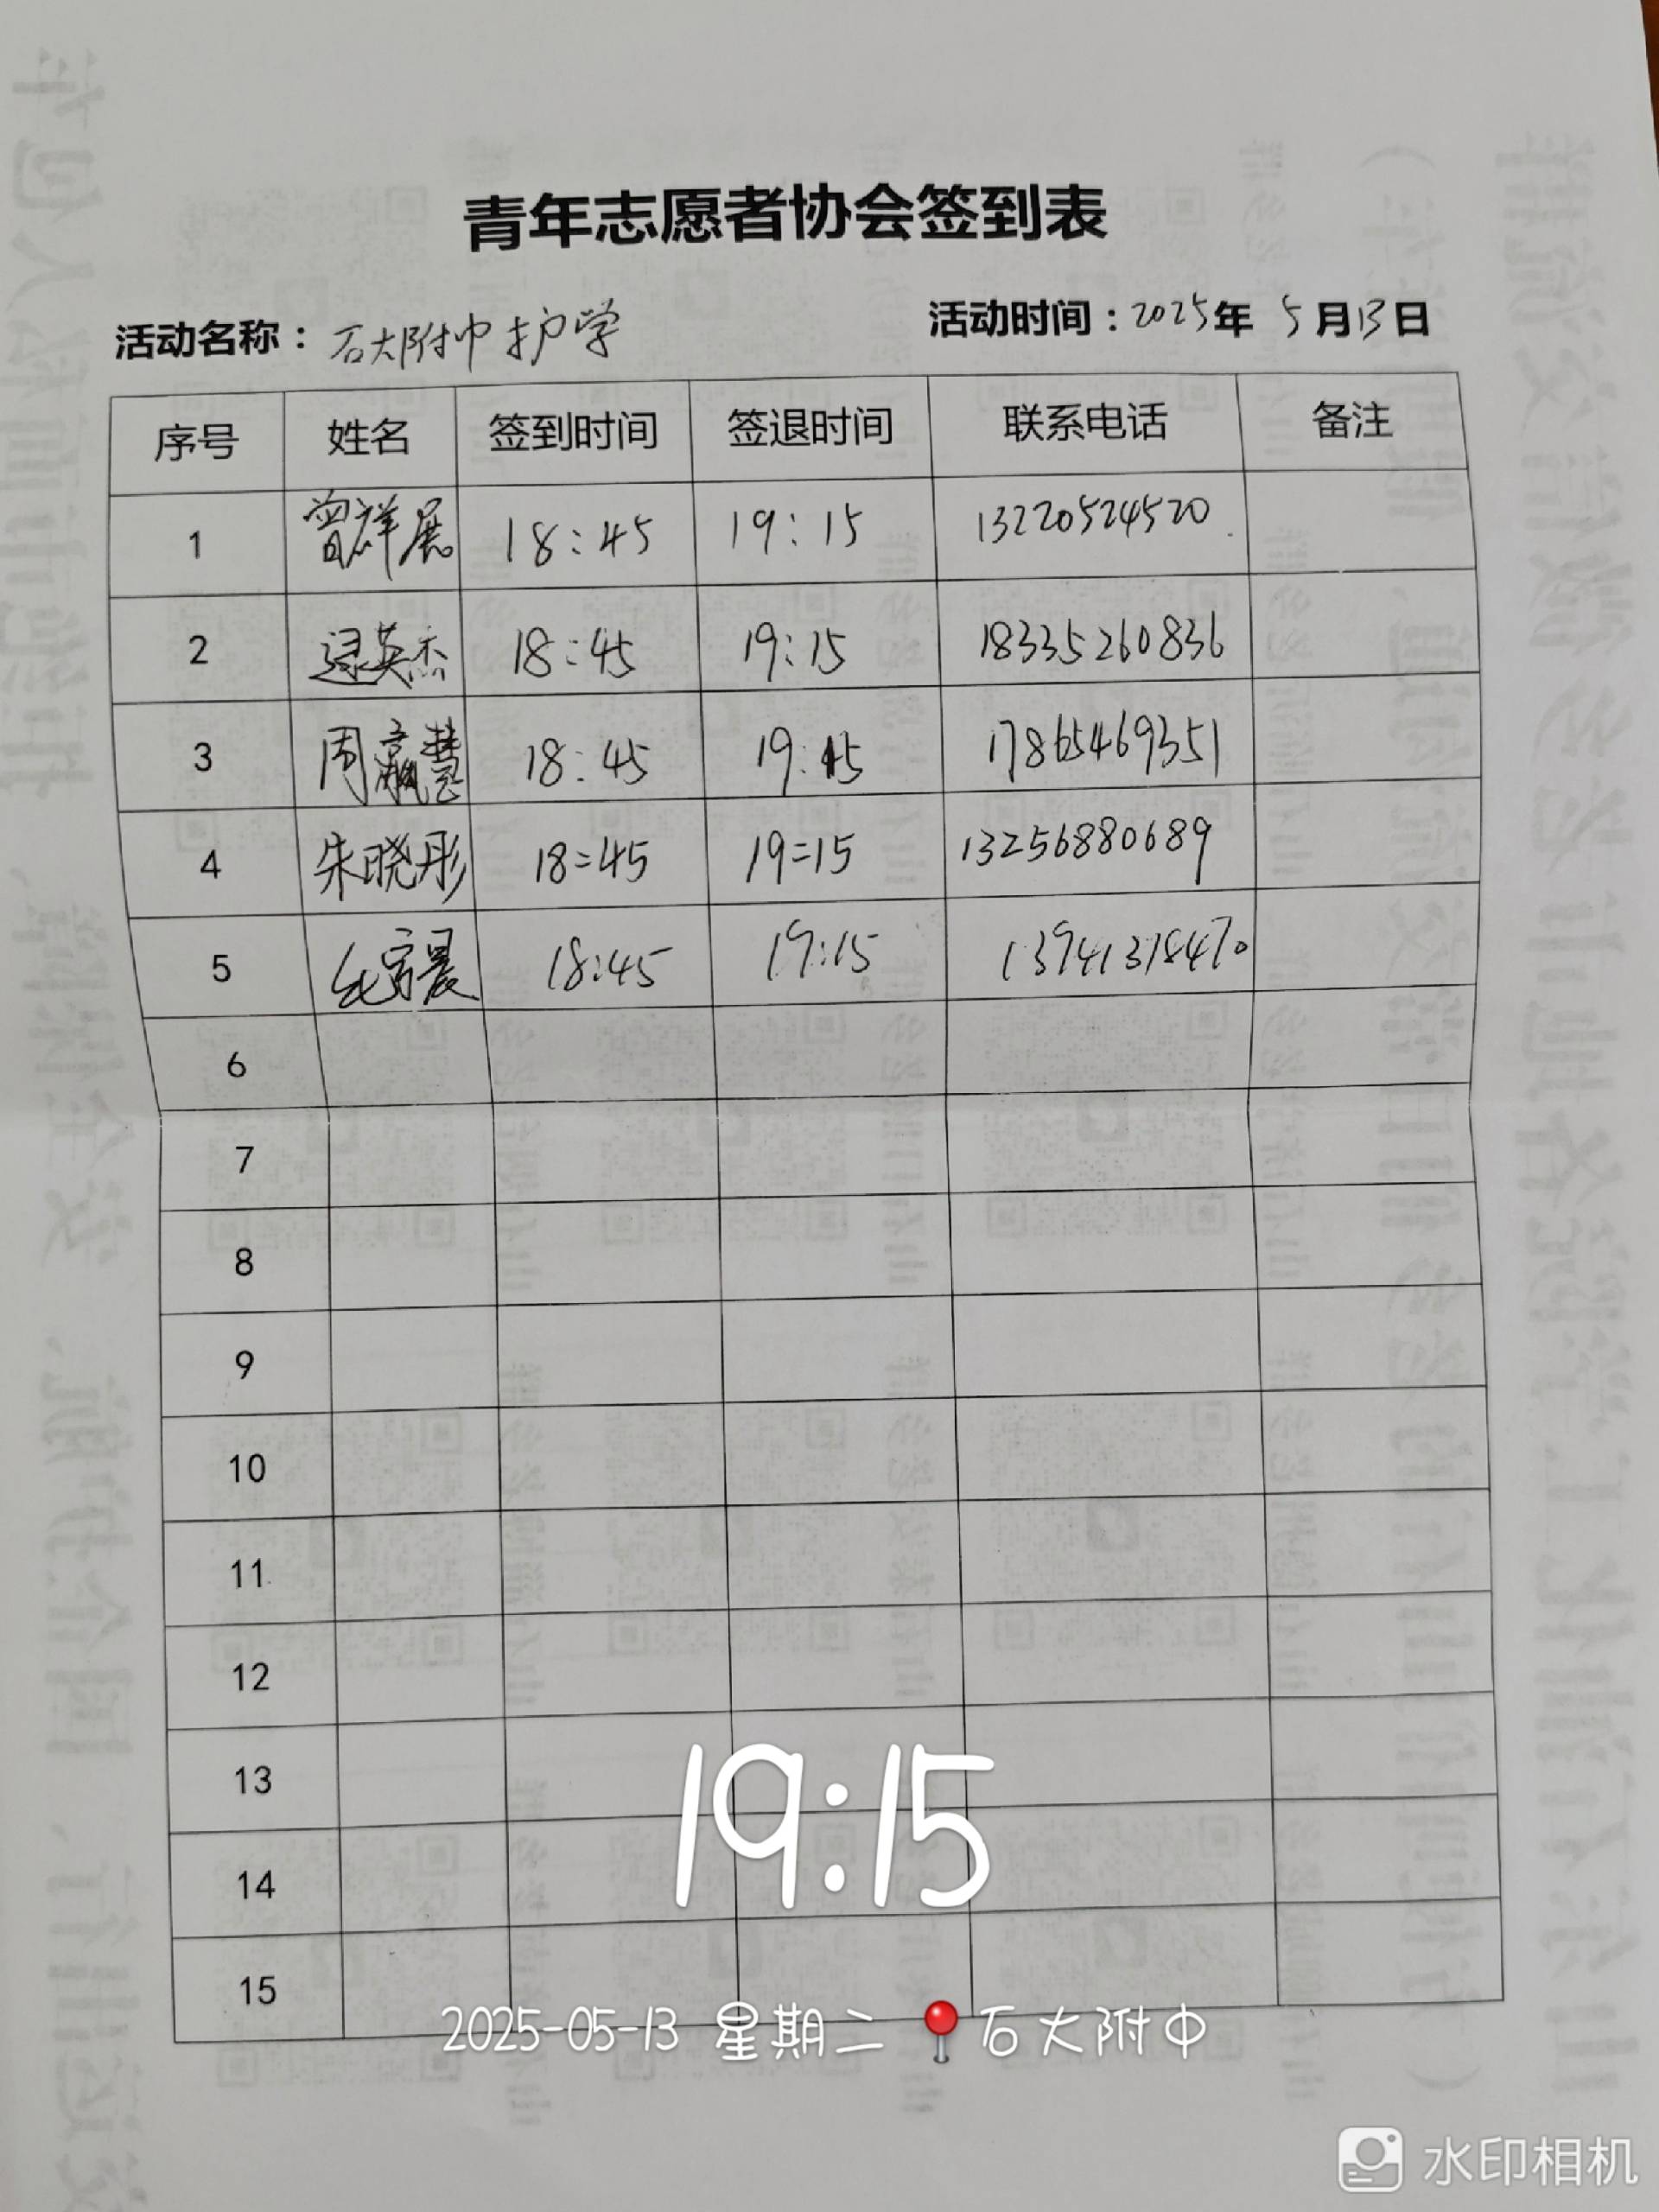 青年志愿者协会签到表
活动名称：石大附中护学 活动时间：2025年 5月13日
序号 姓名 签到时间 签退时间 联系电话 备注
1 曾祥展 18:45 19:15 13220524520
2 逯英杰 18:45 19:15 18335260836
3 周赢慧 18:45 19:15 17865469351
4 朱晓彤 18:45 19:15 13256880689
5 18:45 19:15 13941318470
6
7
8
9
10
11
12
13
14
15
19:15
2025-05-13 星期二 石大附中
水印相机